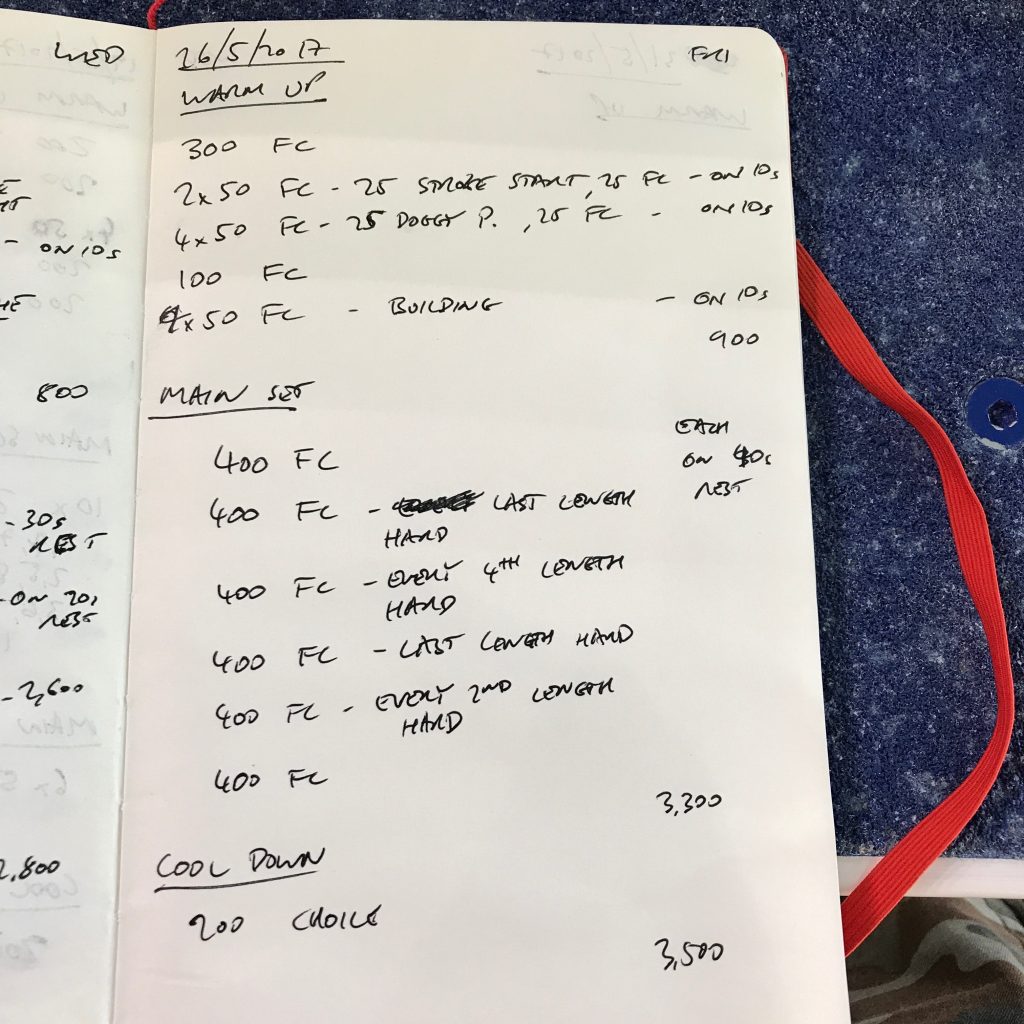 WED
- ON 10s
800
- 30s
REST
- ON 20s
REST
- 2,600
2,800
26/5/2017 FRI
WARM UP
300 FC
2x50 FC - 25 STROKE START, 25 FC - ON 10s
4x50 FC - 25 DOGGY P. , 25 FC - ON 10s
100 FC
4x50 FC - BUILDING - ON 10s
900
MAIN SET
EACH
400 FC ON 40s
REST
400 FC - LAST LENGTH
HARD
400 FC - EVERY 4TH LENGTH
HARD
400 FC - LAST LENGTH HARD
400 FC - EVERY 2ND LENGTH
HARD
400 FC
3,300
COOL DOWN
200 CHOICE
3,500